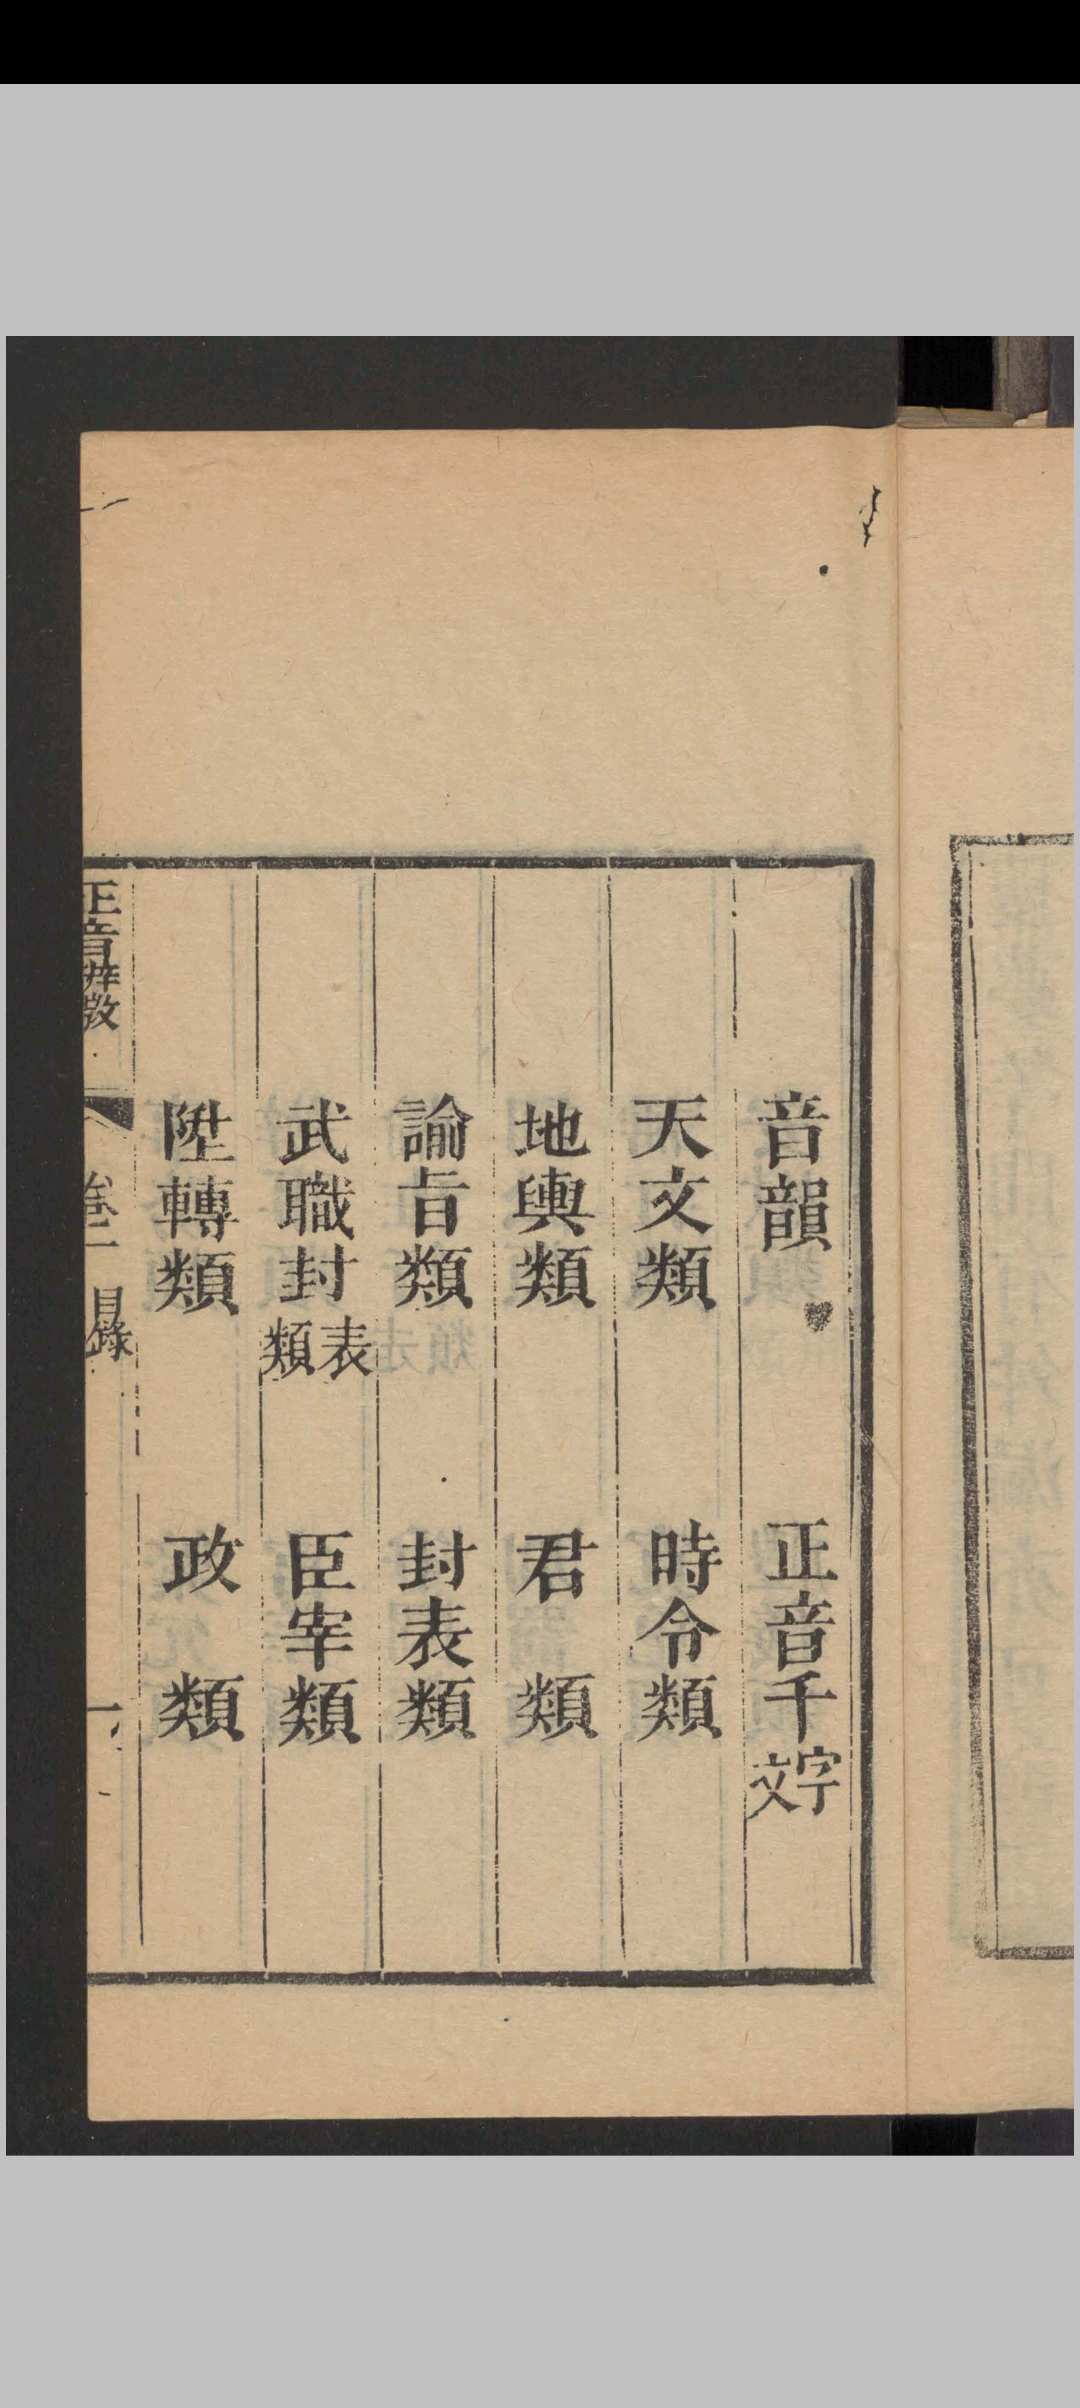 音韻　正音千字文
天文類　時令類
地輿類　君類
諭旨類　封表類
武職封表類　臣宰類
陞轉類　政類
正音
卷一　目錄　一